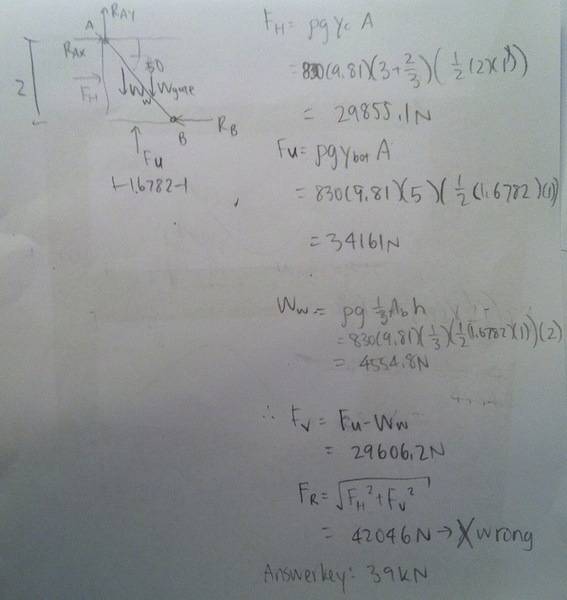 A
R_AY
R_AX
50
2
F_H
W_w
W_gate
B
R_B
F_u
1.6782
F_H = ρg y_c A
= 830(9.81)(3+2/3)(1/2(2)(1))
= 29855.1N
F_u = ρg y_bot A
= 830(9.81)(5)(1/2(1.6782)(1))
= 34161N
W_w = ρg 1/3 A_b h
= 830(9.81)(1/3)(1/2(1.6782)(1))(2)
= 4554.8N
∴ F_V = F_u - W_w
= 29606.2N
F_R = √F_H² + F_V²
= 42046N → X wrong
Answer key: 39kN